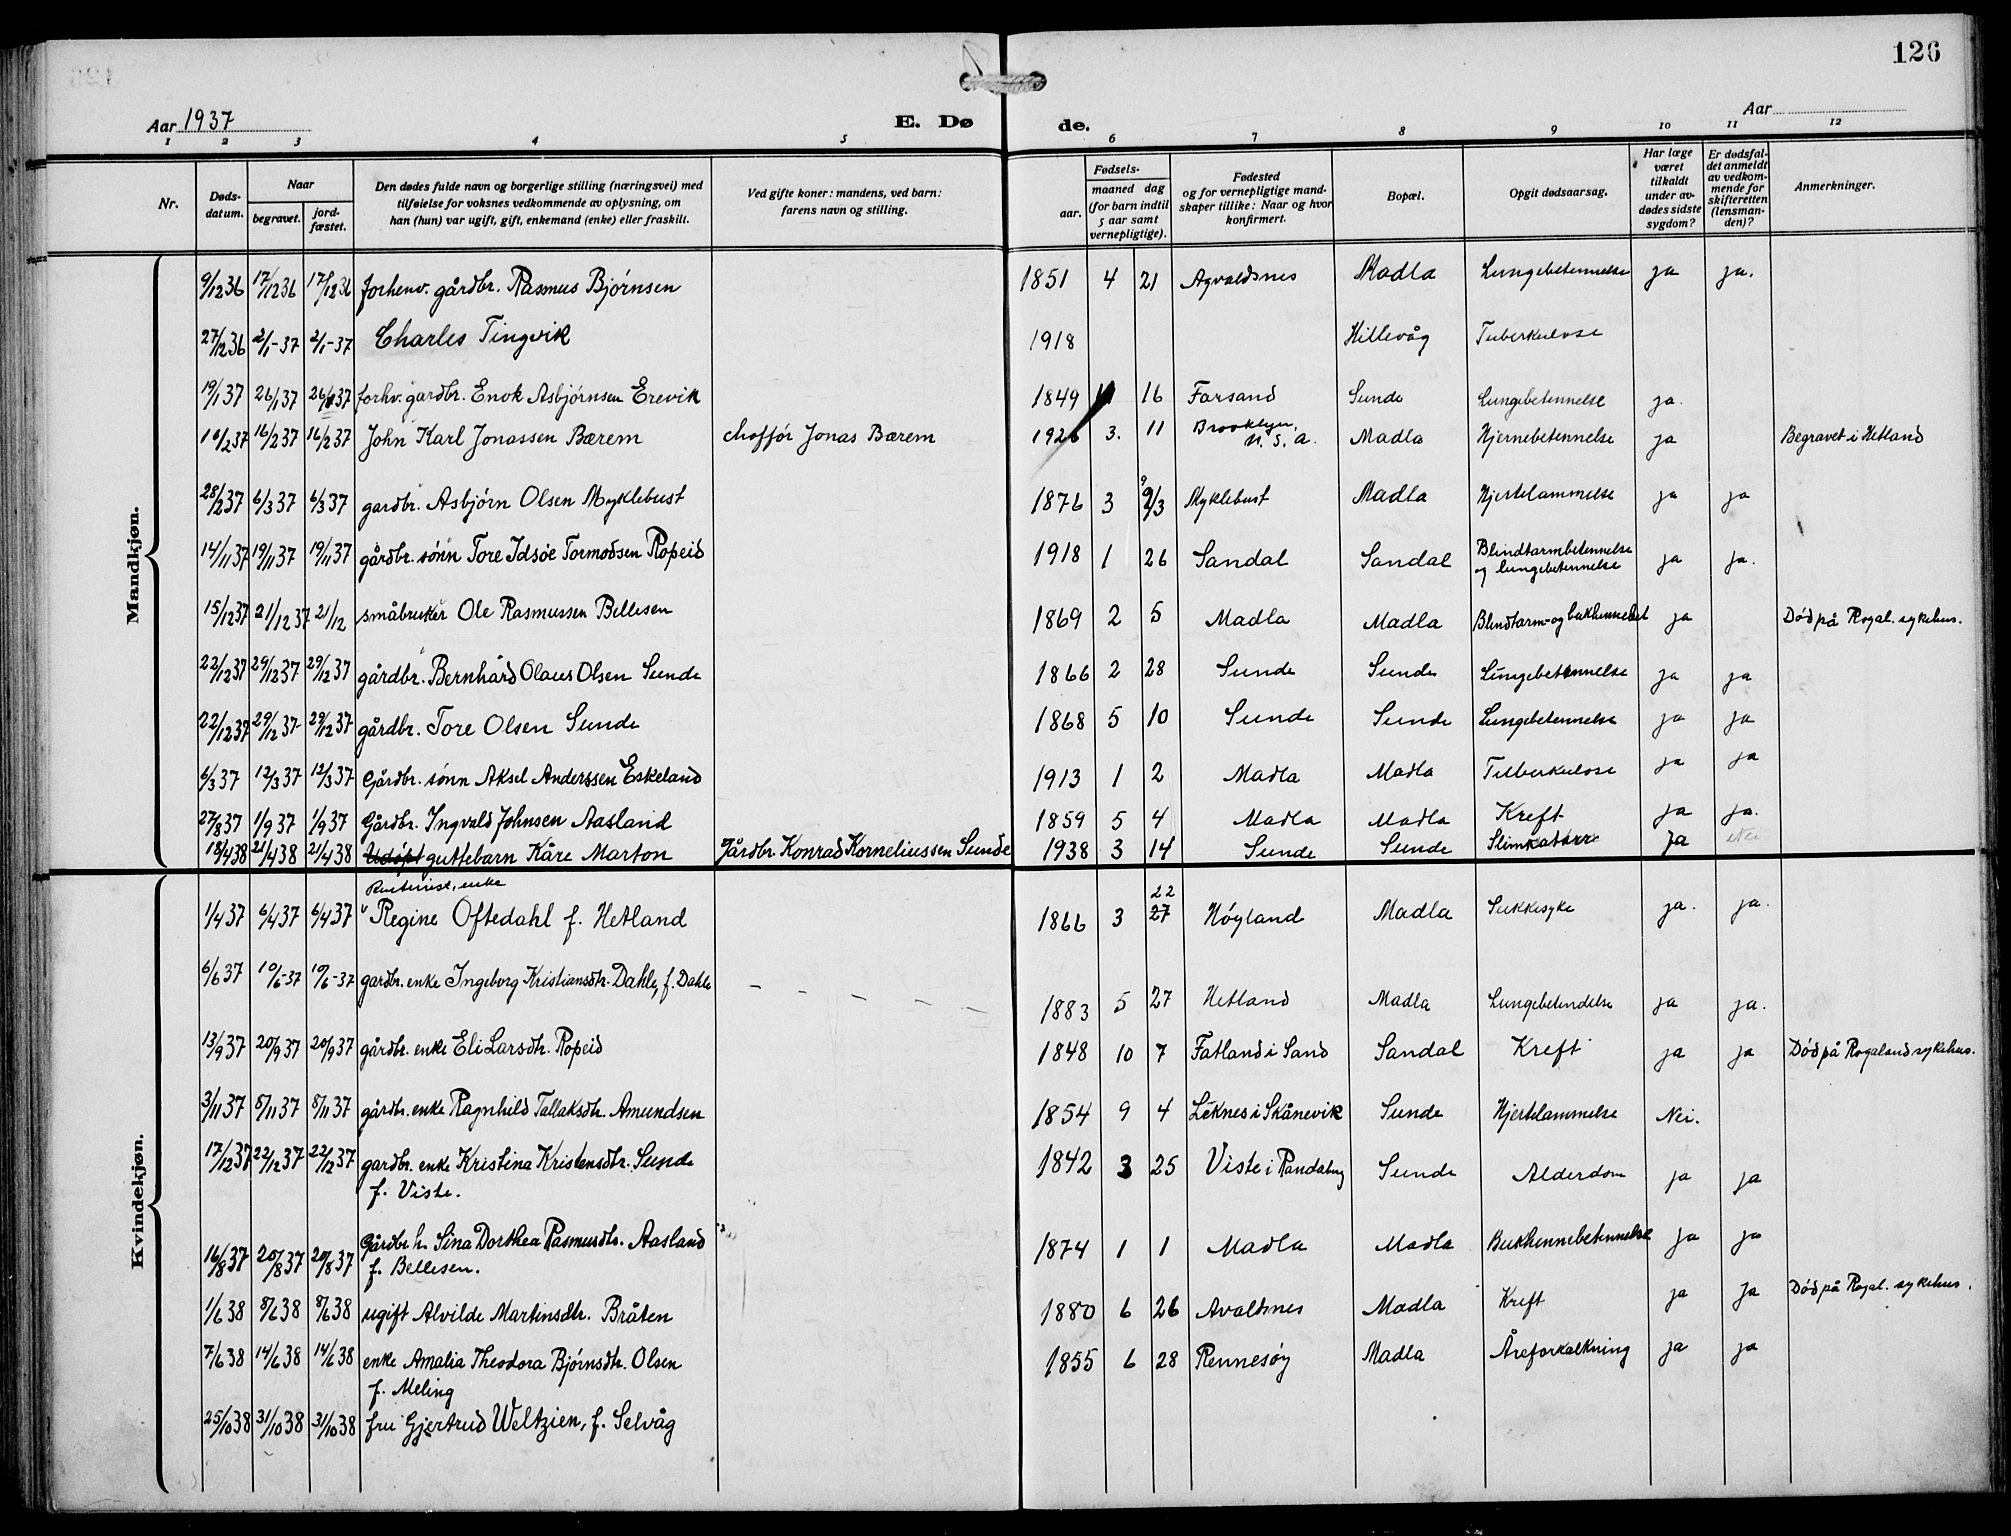 126
Aar 1937
E. Dø
de.
Aar
1 2 3 4 5 6 7 8 9 10 11 12
Nr.
Døds-
datum.
Naar
begravet.
jord-
fæstet.
Den dødes fulde navn og borgerlige stilling (næringsvei) med
tilføielse for voksnes vedkommende av oplysning, om
han (hun) var ugift, gift, enkemand (enke) eller fraskilt.
Ved gifte koner: mandens, ved barn:
farens navn og stilling.
Fødsels-
aar.
maaned dag
(for barn indtil
5 aar samt
vernepligtige).
Fødested
og for vernepligtige mand-
skaper tillike: Naar og hvor
konfirmert.
Bopæl.
Opgit dødsaarsag.
Har læge
været
tilkaldt
under av-
dødes sidste
sygdom?
Er dødsfal-
det anmeldt
av vedkom-
mende for
skifteretten
(lensman-
den)?
Anmerkninger.
Mandkjøn.
9/12 36 17/12 36 17/12 36 forhenv. gårdbr. Rasmus Bjørnsen 1851 4 21 Agvaldsnes Madla Lungebetennelse ja ja.
27/12 36 2/1-37 2/1-37 Charles Tingvik 1918 Hillevåg Tuberkulose
19/1 37 26/1 37 26/1 37 forhv. gardbr. Enok Asbjørnsen Erevik 1849 11 16 Forsand Sunde Lungebetennelse ja.
10/2 37 16/2 37 16/2 37 John Karl Jonassen Bærem chaffør Jonas Bærem 1926 3. 11 Brooklyn, U.S.A. Madla Hjernebetennelse ja Begravet i Hetland
28/2 37 6/3 37 6/3 37 gardbr. Asbjørn Olsen Myklebust 1876 3 9/3 Myklebust Madla Hjertelammelse ja ja
14/11 37 19/11 37 19/11 37 gårdbr. sønn Tore Idsøe Tormodsen Ropeid 1918 1 26 Sandal Sandal Blindtarmbetennelse ja ja.
og lungebetennelse
15/12 37 21/12 37 21/12 småbruker Ole Rasmussen Bellesen 1869 2 5 Madla Madla Blindtarm- og bukhennebet ja Død på Rogal. sykehus.
22/12 37 29/12 37 29/12 37 gårdbr. Bernhard Olaus Olsen Sunde 1866 2 28 Sunde Sunde Lungebetennelse ja ja
22/12 37 29/12 37 29/12 37 gårdbr. Tore Olsen Sunde 1868 5 10 Sunde Sunde Lungebetennelse ja ja
6/3 37 12/3 37 12/3 37 Gårdbr. sønn Aksel Anderssen Eskeland 1913 1 2 Madla Madla Tuberkulose ja ja
27/8 37 1/9 37 1/9 37 Gårdbr. Ingvald Johnsen Aasland 1859 5 4 Madla Madla Kreft ja ja.
18/4 38 21/4 38 21/4 38 Udøpt guttebarn Kåre Marton Gårdbr. Konrad Korneliussen Sunde 1938 3 14 Sunde Sunde Slimkatarr ja nei
Kvindekjøn.
Rentenist, enke 22
1/4 37 6/4 37 6/4 37 Regine Oftedahl f. Hetland 1866 3 27 Høyland Madla Sukkesyke ja. ja.
6/6 37 10/6-37 10/6-37 gardbr. enke Ingeborg Kristiansdtr. Dahle, f. Dahle – – – – – 1883 5 27 Hetland Madla Lungebetendelse ja ja.
13/9 37 20/9 37 20/9 37 gårdbr. enke Eli Larsdtr. Ropeid 1848 10 7 Fatland i Sand Sandal Kreft ja ja Død på Rogaland sykehus.
3/11 37 8/11 37 8/11 37 gårdbr. enke Ragnhild Tallaksdtr. Amundsen 1854 9 4 Leknes i Skånevik Sunde Hjertelammelse Nei.
17/12 37 22/12 37 22/12 37 gardbr. enke Kristina Kristensdtr. Sunde 1842 3 25 Viste i Randaberg Sunde Alderdom ja ja
f. Viste.
16/8 37 20/8 37 20/8 37 Gårdbr. h. Sina Dorthea Rasmusdtr. Aasland 1874 1 1 Madla Madla Bukhennebetennelse ja ja
f. Bellesen.
1/6 38 8/6 38 8/6 38 ugift Alvilde Martinsdtr. Bråten 1880 6 26 Avaltsnes Madla Kreft ja ja Død på Rogal. sykehus.
7/6 38 14/6 38 14/6 38 enke Amalia Theodora Bjørnsdtr. Olsen 1855 6 28 Rennesøy Madla Åreforkalkning ja ja
f. Meling
25/10 38 31/10 38 31/10 38 fru Gjertrud Weltzien, f. Selvåg